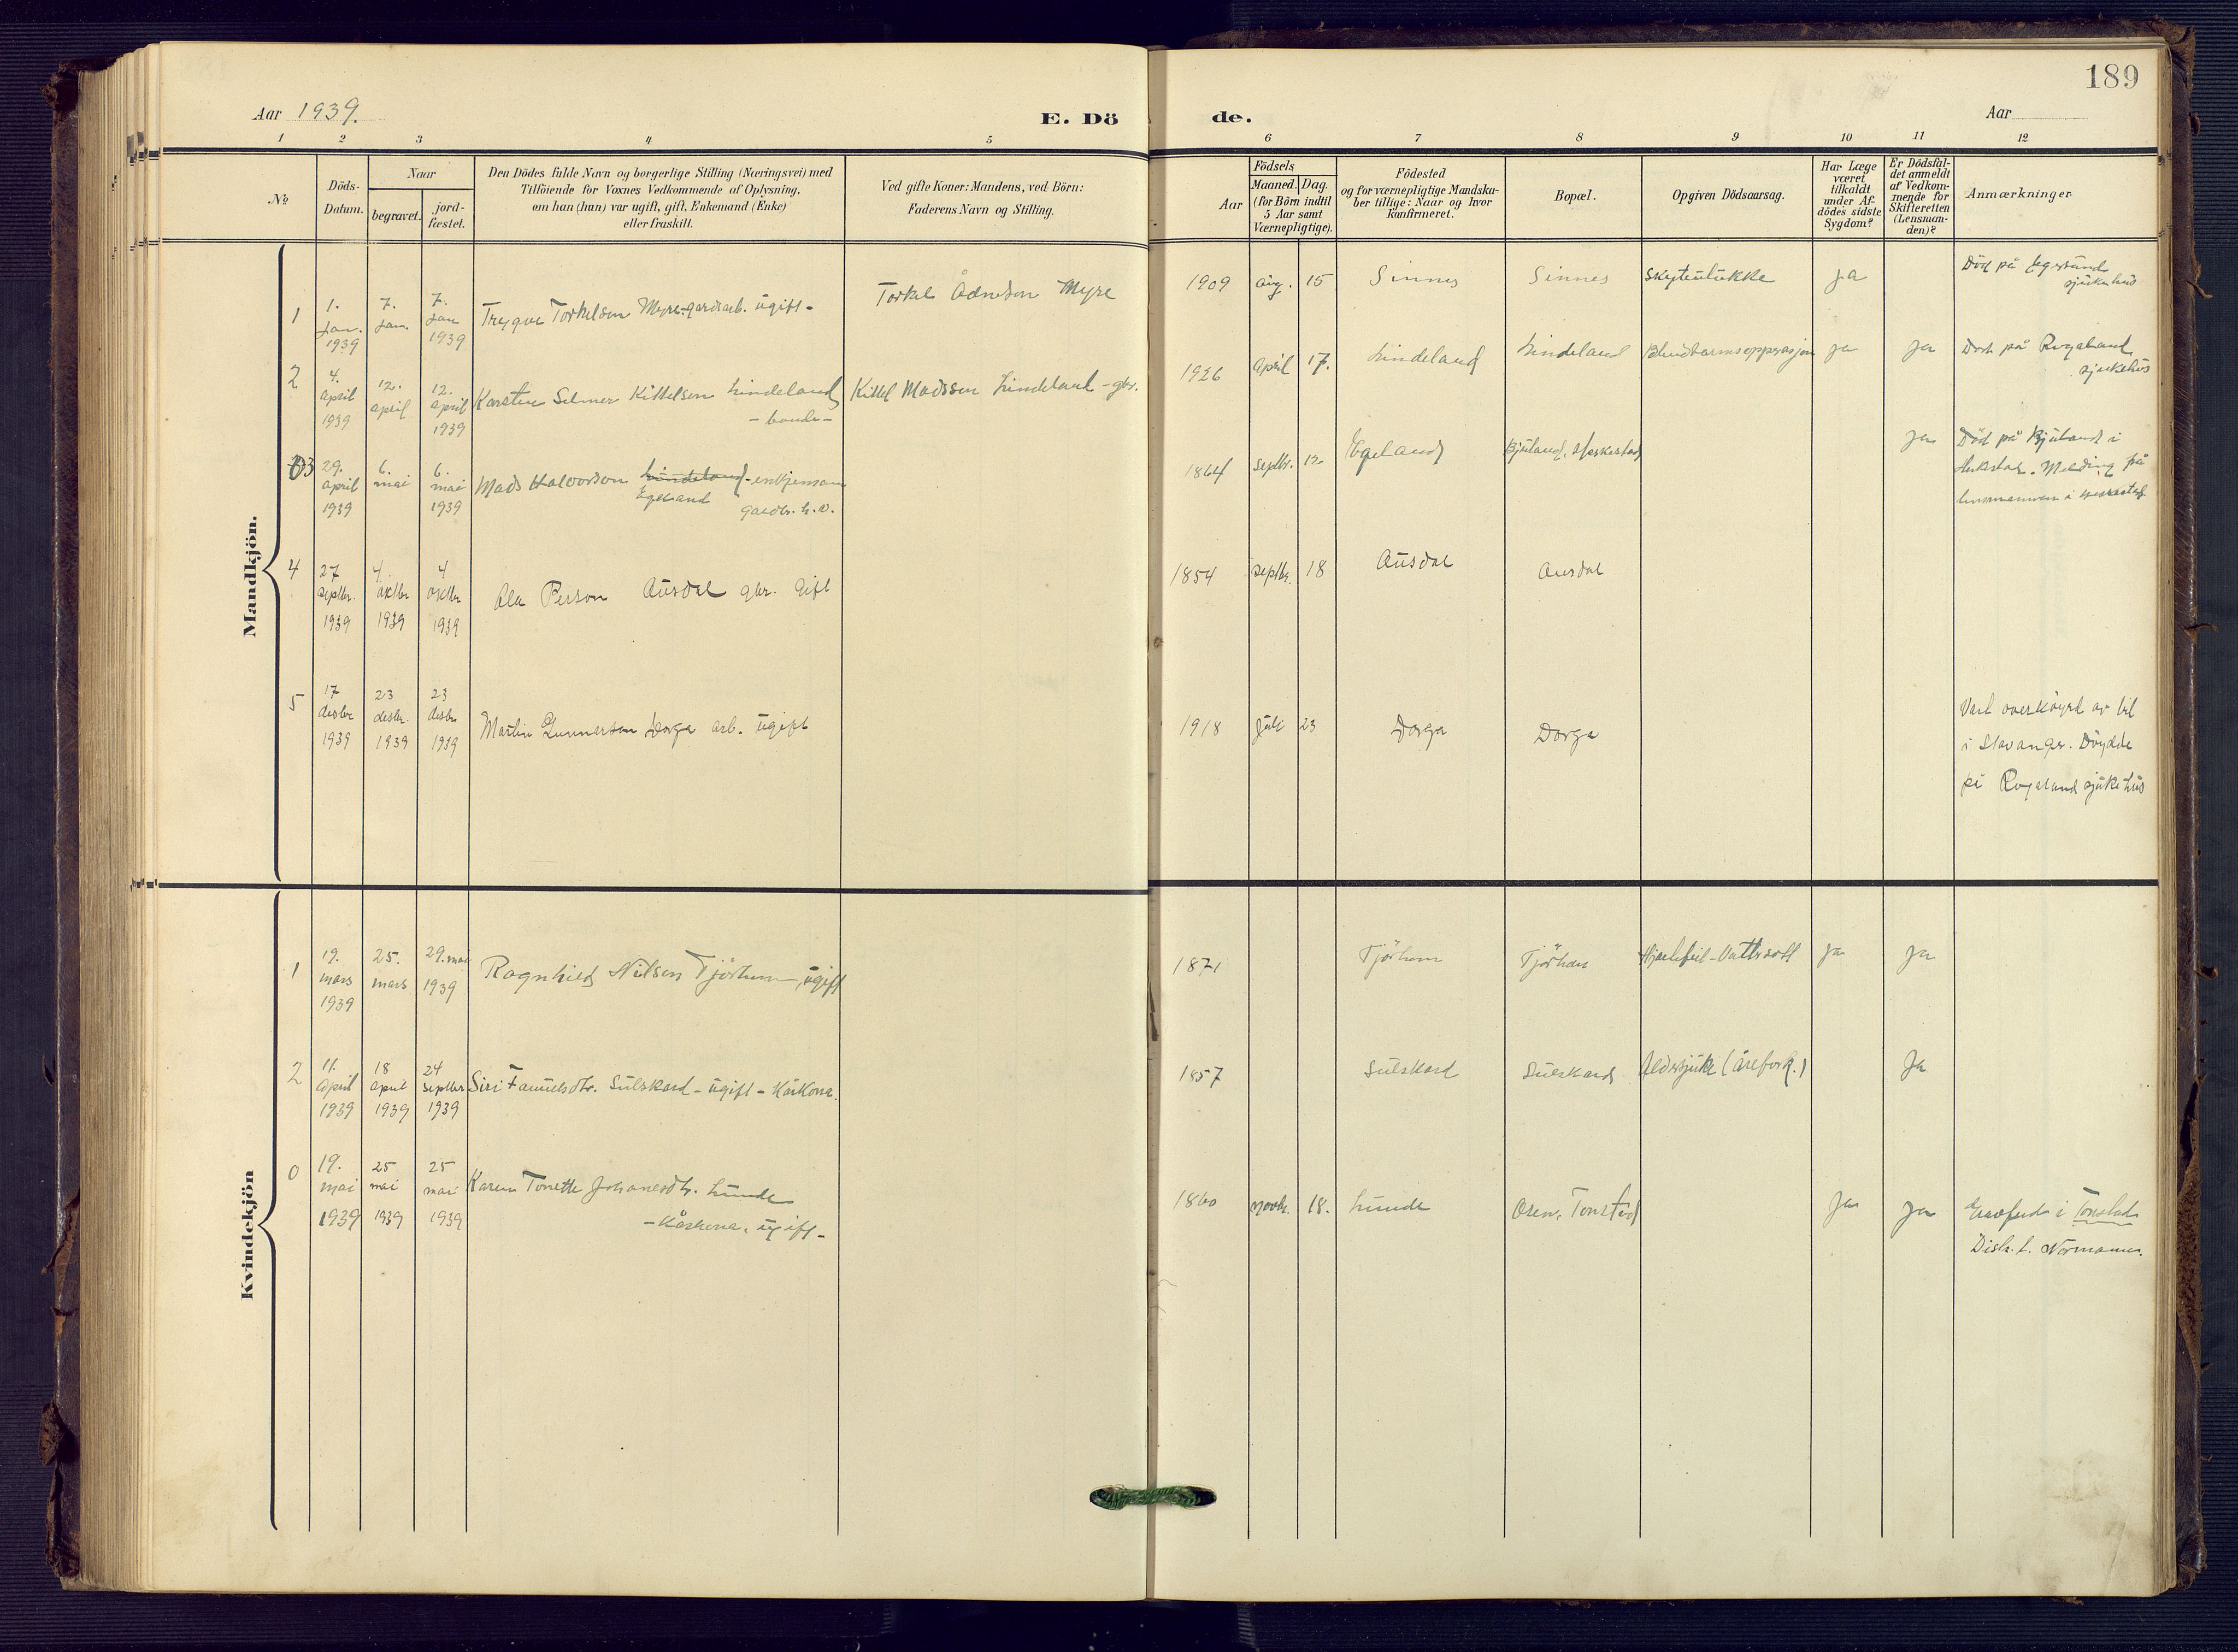 189
Aar 1939.
E. Dö
de.
Aar
1 2 3 4 5 6 7 8 9 10 11 12
No
Döds-
Datum.
Naar
begravet.
jord-
fæstet.
Den Dödes fulde Navn og borgerlige Stilling (Næringsvei) med
Tilföiende for Voxnes Vedkommende af Oplysning,
om han (hun) var ugift, gift, Enkemand (Enke)
eller fraskilt.
Ved gifte Koner: Mandens, ved Börn:
Faderens Navn og Stilling.
Födsels
Aar
Maaned. Dag.
(for Börn indtil
5 Aar samt
Værnepligtige).
Födested
og for værnepligtige Mandska-
ber tillige: Naar og hvor
konfirmeret.
Bopæl.
Opgiven Dödsaarsag.
Har Læge
været
tilkaldt
under Af-
dödes sidste
Sygdom?
Er Dödsfal-
det anmeldt
af Vedkom-
mende for
Skifteretten
(Lensman-
den)?
Anmærkninger
Mandkjön.
1
1.
jan.
1939
7.
jan.
7.
jan
1939
Trygve Torkelsen Myre-gardsarb. ugift-
Torkel Ådneson Myre
1909 aug. 15 Sinnes Sinnes Skyteulukke ja
Död på Egersund
sjukehus
2
4.
april
1939
12.
april
12.
april
1939
Karsten Selmer Kittelsen Lindeland
- bonde -
Kittel Madsson Lindeland - gbr.
1926 april 17. Lindeland Lindeland Blindtarmsopperasjon ja ja
Död på Rogaland
sjukehus
3
29.
april
1939
6.
mai
6.
mai
1939
Mads Halvorson Lindeland - enkjemann
Egeland
gardbr. h.v.
1864 septbr. 12. Egeland Bjuland, Heskestad ja
Död på Bjuland i
Melding på
lensmannen i Heskestad
4
27
septbr.
1939
4.
oktbr
1939
4
oktbr
1939
Ola Person Ausdal gbr. Gift
1854 septbr. 18 Ausdal Ausdal
5
17
desbr
1939
23
desbr.
1939
23
desbr
1939
Martin Gunnerson Dorga arb. ugift
1918 juli 23 Dorga Dorga
Vart overköyrd av bil
i Stavanger. Döydde
på Rogaland sjukehus
Kvindekjön
1
19.
mars
1939
25.
mars
29. mai
1939
Ragnhild Nilsen Tjörhom, ugift
1871 Tjörhom Tjörhom Hjertefeil-Vattersott ja ja
2
11.
april
1939
18
april
1939
24
septbr
1939
Siri Samuelsdtr. Sulskard - ugift - Kårkona.
1857 Sulskard Sulskard Aldersjuke (årefork.) Ja
0
19.
mai
1939
25
mai
1939
25
mai
1939
Karen Tonette Johanesdtr. Lunde
- Kårkona. ugift -
1860 novbr. 18. Lunde Osen, Tonstad Ja ja
Gravferd i Tonstad
Distr. l. Normann.